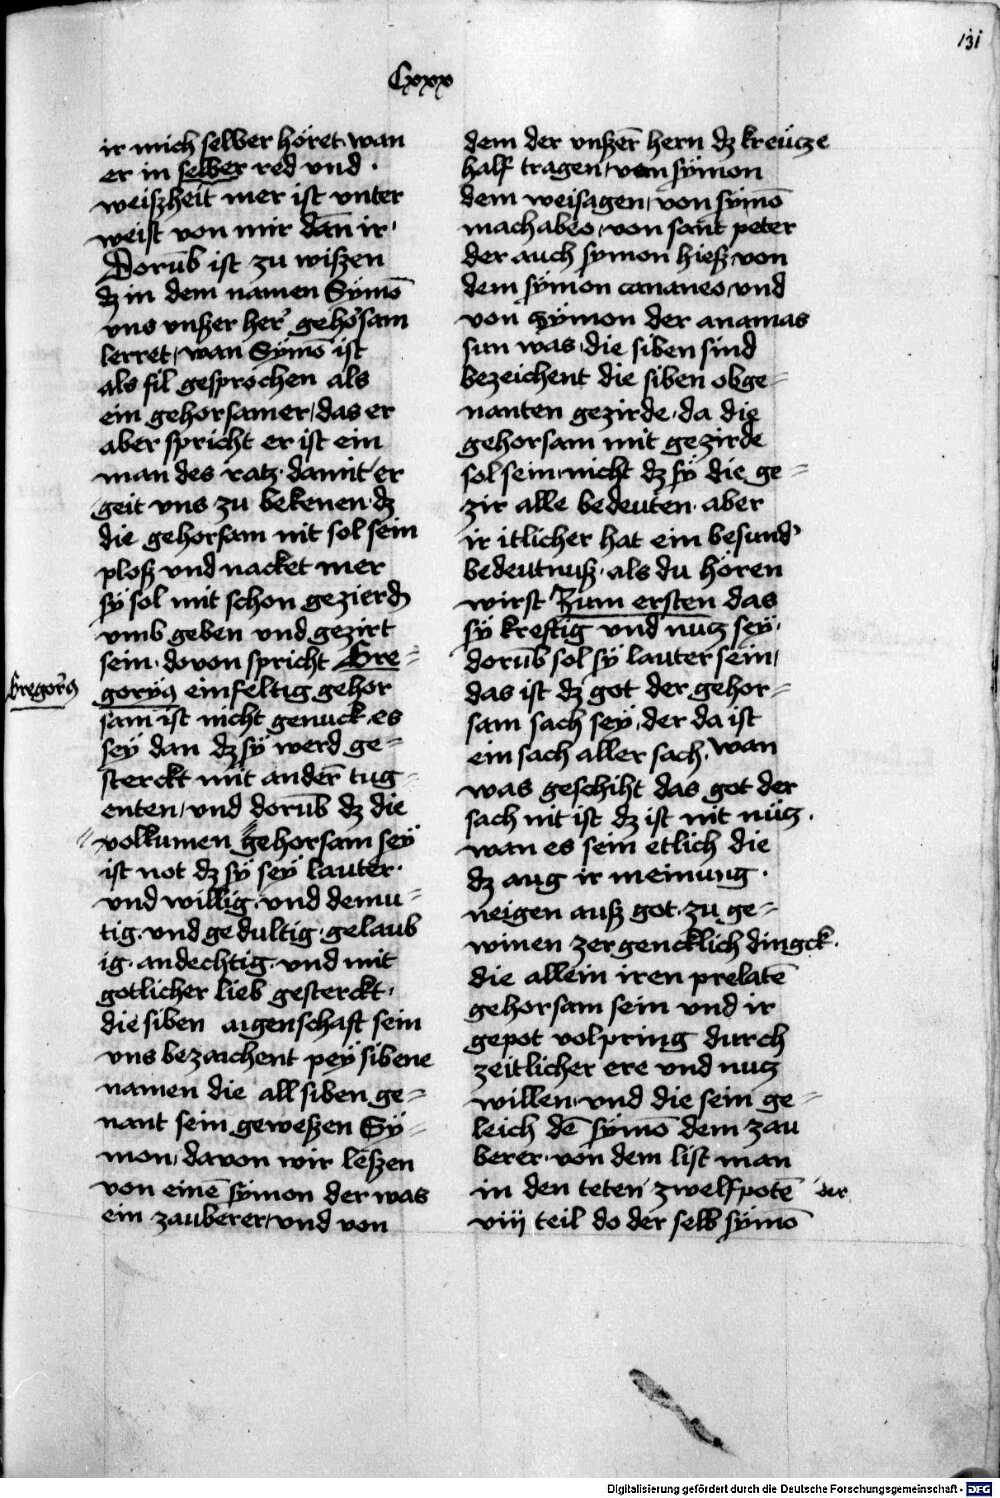 131
Cxxx
ir mich selber höret wan
er in selber red und ·
weiszheit mer ist unter
weist von mir dan̄ ir ·
Dorūb ist zu wiszen
dz in dem namen Symō
vns vnszer her̄ gehorsam
lerret / wan Symō ist
als fil gesprochen als
ein gehorsamer / das er
aber spricht er ist ein
man des ratz · damit er
geit vns zu bekenen · dz
die gehorsam nit sol sein
plosz vnd nacket mer
sÿ sol mit schon gezierd
vmb geben vnd gezirt
sein · dovon spricht Gre=
goryꝰ einfeltig gehor
sam ist nicht genuck · es
seÿ dan dz sÿ werd ge=
sterckt mit ander̄ tug=
enten / vnd dorūb dz die
volkumen gehorsam seÿ
ist not dz sÿ seÿ lauter ·
vnd willig · vnd demu=
tig · vnd gedultig · gelaub
ig · andechtig · vnd mit
gotlicher lieb gesterckt ·
die siben aigenschaft sein
vns bezaichent peÿ sibene
namen die all siben ge=
nant sein geweszen Sÿ=
mon / davon wir leszen
von einē sÿmon der was
ein zauberer / vnd von
Gregoriꝰ
dem der vnszer̄ hern dz kreücze
half tragen / von sÿmon
dem weisagen / von sÿmō
machabeo / von sant peter
der auch symon hiesz von
dem sÿmon cananeo / vnd
von sÿmon der ananias
sun was · die siben sind
bezeichent die siben obge=
nanten gezirde · da die
gehorsam mit gezirde
sol sein · nicht dz sÿ die ge=
zir alle bedeuten · aber
ir itlicher hat ein besund̾
bedeutnusz · als du hören
wirst Zum ersten das
sÿ kreftig vnd nutz seÿ ·
dorūb sol sÿ lauter sein /
das ist dz got der gehor=
sam sach seÿ · der da ist
ein sach aller sach · wan
was geschiht das got der
sach nit ist dz ist nit nütz ·
wan es sein etlich die
dz aug ir meinung ·
neigen ausz got · zu ge=
winen zergencklich dingck ·
die allein iren prelatē
gehorsam sein vnd ir
gepot volpring durch
zeitlicher ere vnd nutz
willen · vnd die sein ge=
leich dē sÿmō dem zau
berer · von dem list man
in den teten zwelfpotē der
viij teil do der selb sÿmō
Digitalisierung gefördert durch die Deutsche Forschungsgemeinschaft - DFG